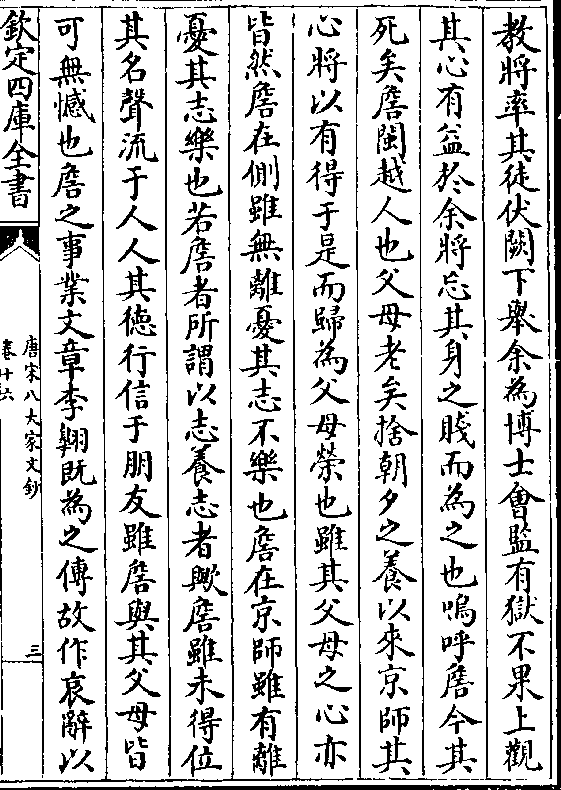 教將率其徒伏闕下舉余為博士會監有獄不果上觀
其心有益於余將忘其身之賤而為之也嗚呼詹今其
死矣詹閩越人也父母老矣捨朝夕之養以來京師其
心將以有得于是而歸為父母榮也雖其父母之心亦
皆然詹在側雖無離憂其志不樂也詹在京師雖有離
憂其志樂也若詹者所謂以志養志者歟詹雖未得位
其名聲流于人人其德行信于朋友雖詹與其父母皆
可無憾也詹之事業文章李翺既為之傳故作哀辭以
欽定四庫全書
唐宋八大家文鈔
卷十六
三